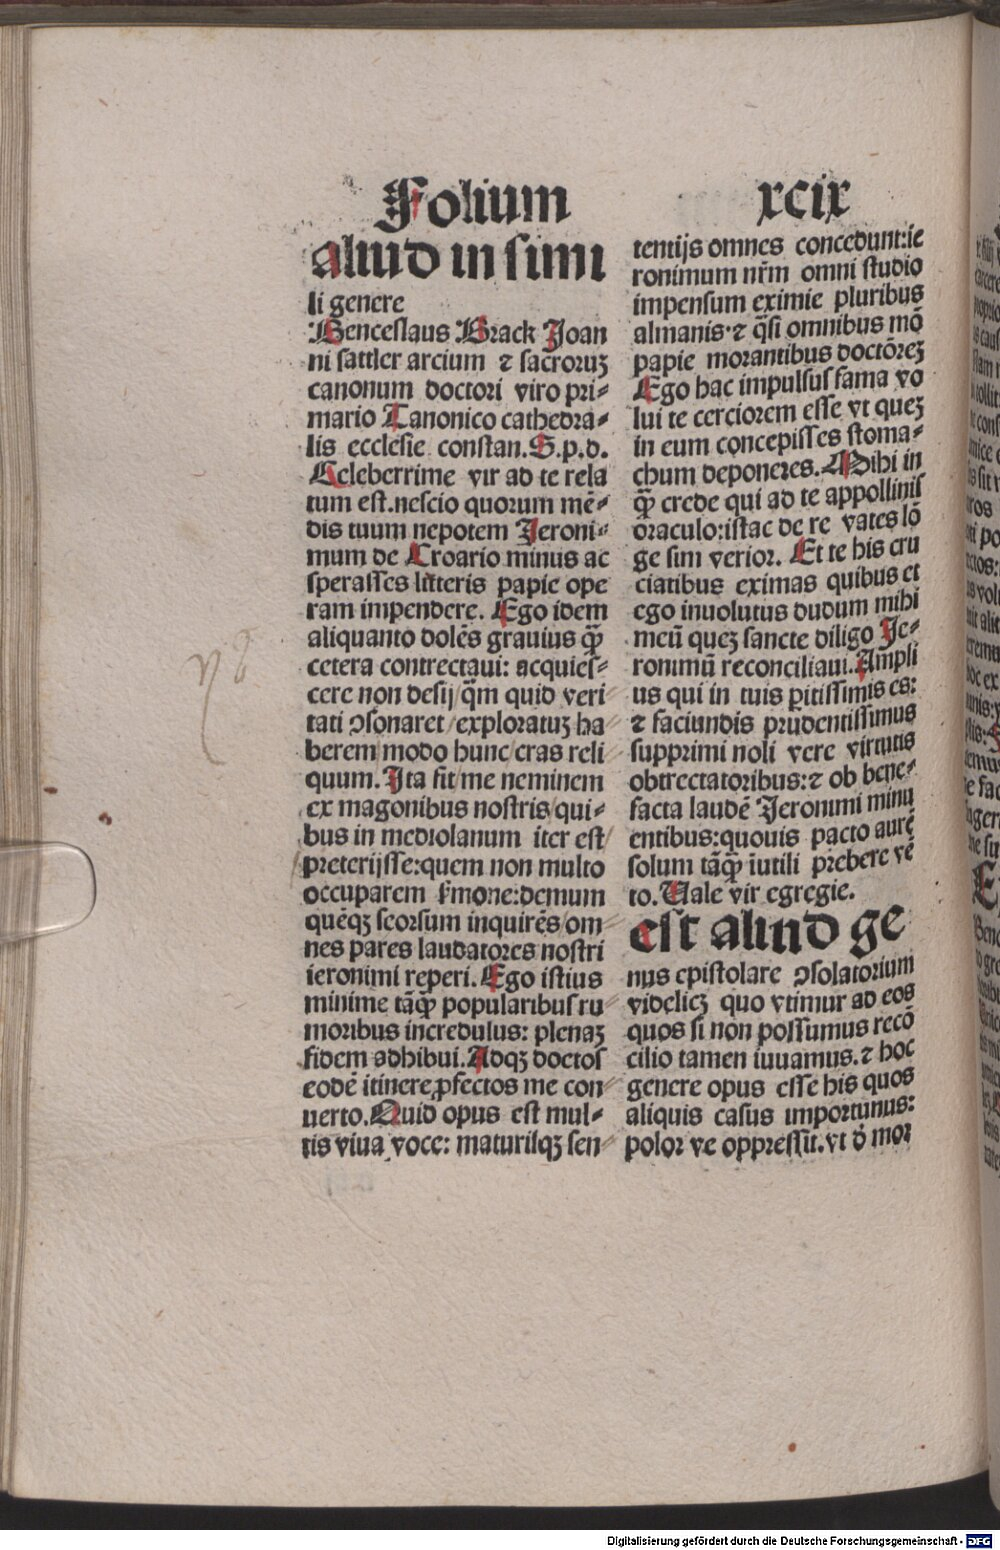 Folium xcix
aliud in simi
li genere
Wenceslaus Brack Joan
ni sattler arcium ⁊ sacroruꝫ
canonum doctori viro pri⸗
mario Canonico cathedra⸗
lis ecclesie constan. S.p.d.
Celeberrime vir ad te rela
tum est.nescio quorum mē⸗
dis tuum nepotem Jeroni⸗
mum de Croario minus ac
sperasses litteris papie ope
ram impendere. Ego idem
aliquanto dolēs grauius qꝫ̄
cetera contrectaui: acquies⸗
cere non desij/qm̄ quid veri⸗
tati ↄsonaret/exploratuꝫ ha⸗
berem/modo hunc/cras reli⸗
quum. Ita fit/me neminem
ex magonibus nostris/qui⸗
bus in mediolanum iter est/
preterijsse:quem non multo
occuparem s̄mone:demum
quēqꝫ seorsum inquirēs/om⸗
nes pares laudatores nostri
ieronimi reperi. Ego istius
minime tāqꝫ̄ popularibus ru⸗
moribus incredulus: plenaꝫ
fidem adhibui. Adqꝫ doctos
eodē itinere ꝓfectos me con⸗
uerto. Quid opus est mul⸗
tis viua voce: maturilqꝫ sen⸗
tentijs omnes concedunt:ie
ronimum nr̄m omni studio
impensum eximie pluribus
almanis·⁊ q̄si omnibus mō
papie morantibus doctōreꝫ
Ego hac impulsus fama vo
lui te cerciorem esse vt queꝫ
in eum concepisses stoma⸗
chum deponeres. Mihi in
qꝫ̄ crede qui ad te appollinis
oraculo:istac de re vates lō
ge sim verior. Et te his cru
ciatibus eximas quibus et
ego inuolutus dudum mihi
meū queꝫ sancte diligo Je⸗
ronimū reconciliaui. Ampli
us qui in tuis ꝑitissimis es:
⁊ faciundis prudentissimus
supprimi noli vere virtutis
obtrectatoribus:⁊ ob bene⸗
facta laudē Jeronimi minu
entibus:quouis pacto aurē
solum tāqꝫ̄ iutili prebere vē
to. Vale vir egregie.
est aliud ge
nus epistolare ↄsolatorium
videlicꝫ quo vtimur ad eos
quos si non possumus recō
cilio tamen iuuamus. ⁊ hoc
genere opus esse his quos
aliquis casus importunus:
polor ve oppressit. vt ð mor
Digitalisierung gefördert durch die Deutsche Forschungsgemeinschaft - DFG